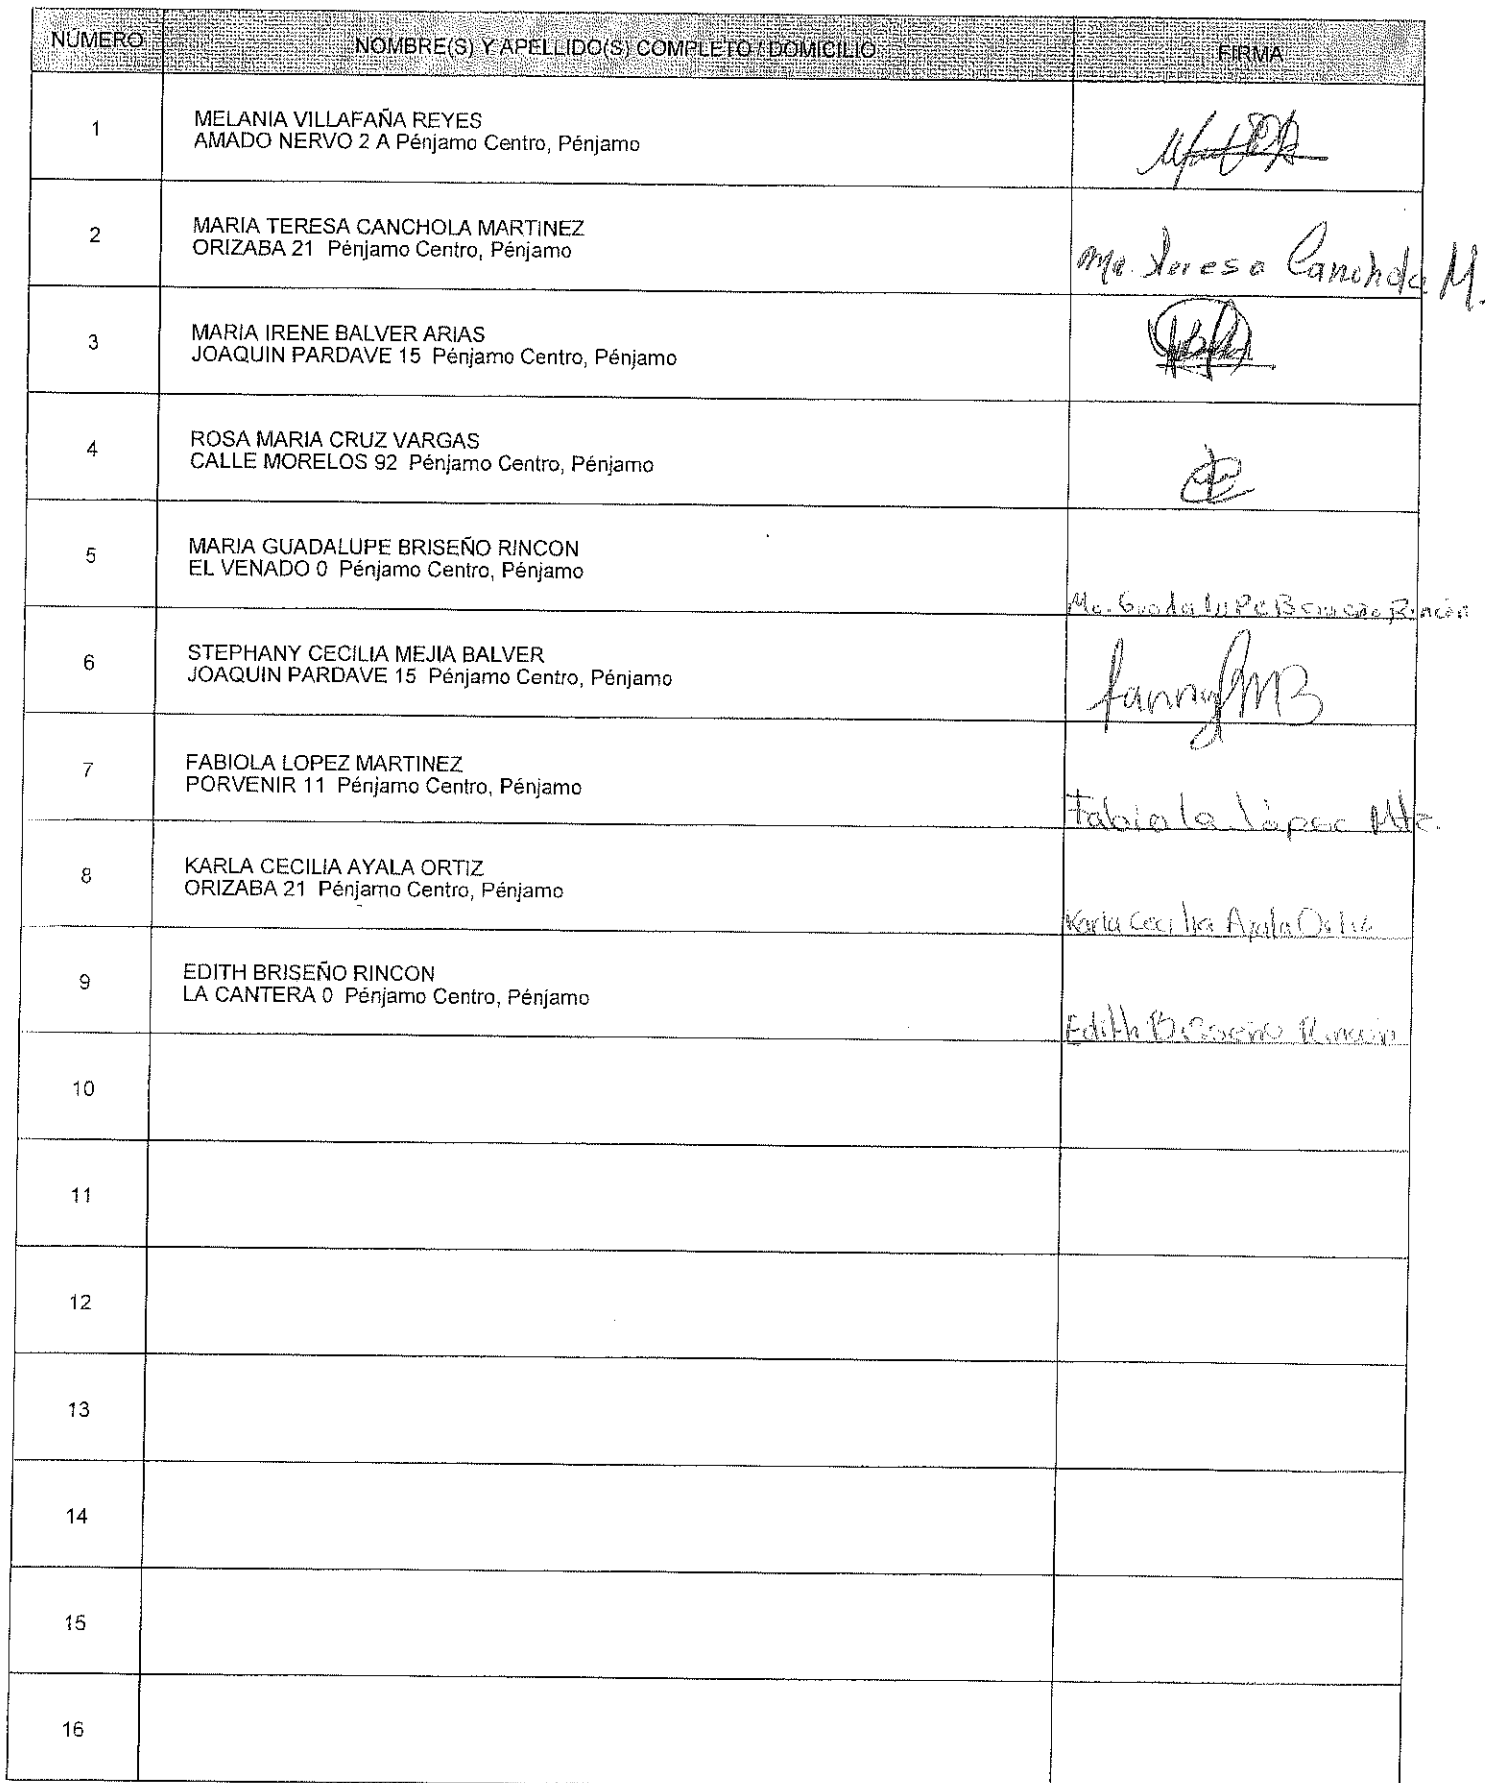 NÚMERO NOMBRE(S) Y APELLIDO(S) COMPLETO / DOMICILIO FIRMA
1 MELANIA VILLAFAÑA REYES
AMADO NERVO 2 A Pénjamo Centro, Pénjamo
2 MARIA TERESA CANCHOLA MARTINEZ
ORIZABA 21 Pénjamo Centro, Pénjamo
Ma. Teresa Canchola M.
3 MARIA IRENE BALVER ARIAS
JOAQUIN PARDAVE 15 Pénjamo Centro, Pénjamo
4 ROSA MARIA CRUZ VARGAS
CALLE MORELOS 92 Pénjamo Centro, Pénjamo
5 MARIA GUADALUPE BRISEÑO RINCON
EL VENADO 0 Pénjamo Centro, Pénjamo
Ma. Guadalupe Briseño Rincón
6 STEPHANY CECILIA MEJIA BALVER
JOAQUIN PARDAVE 15 Pénjamo Centro, Pénjamo
fanny MB
7 FABIOLA LOPEZ MARTINEZ
PORVENIR 11 Pénjamo Centro, Pénjamo
Fabiola López Mtz.
8 KARLA CECILIA AYALA ORTIZ
ORIZABA 21 Pénjamo Centro, Pénjamo
Karla Cecilia Ayala Ortiz
9 EDITH BRISEÑO RINCON
LA CANTERA 0 Pénjamo Centro, Pénjamo
Edith Briseño Rincón
10
11
12
13
14
15
16